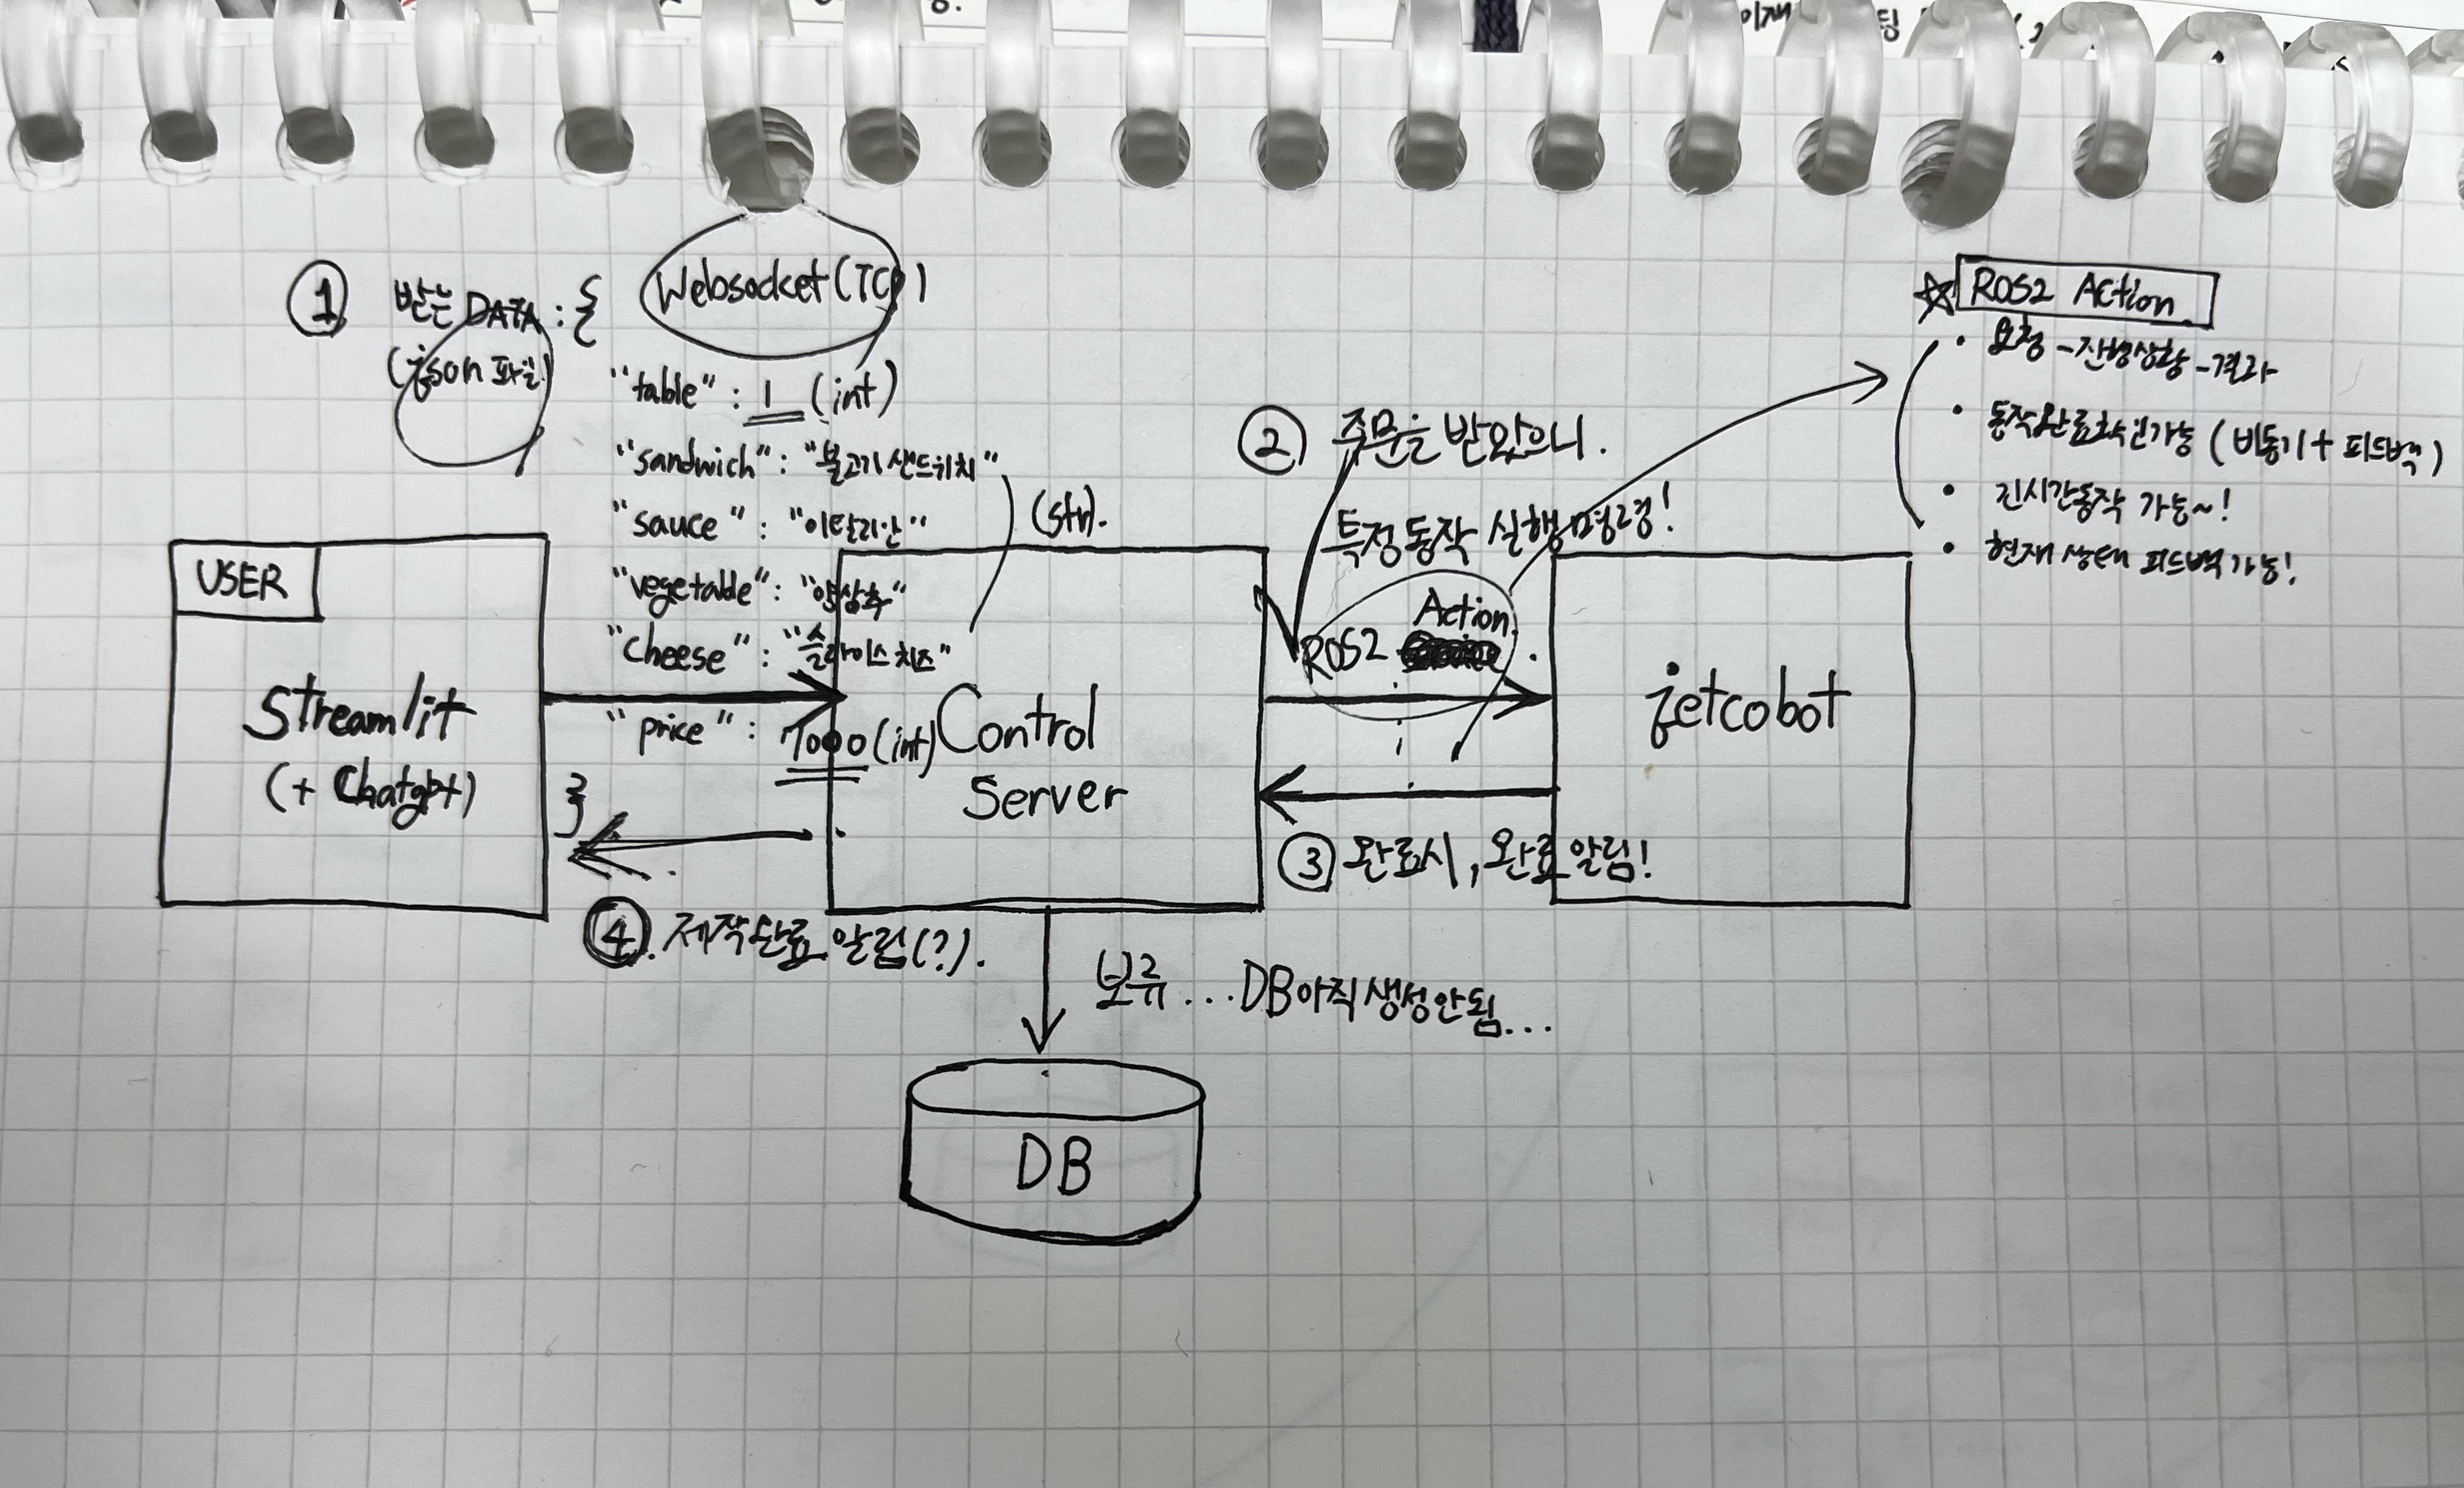 ① 받는 DATA : {
(json 파일)
Websocket (TCP)
"table" : 1 (int)
"sandwich" : "불고기 샌드위치"
"sauce" : "이탈리안"
"vegetable" : "양상추"
"cheese" : "슬라이스 치즈"
(str).
"price" : 7000 (int)
}
USER
Streamlit
(+ Chatgpt)
Control
Server
② 주문을 받았으니.
특정 동작 실행 명령!
Action
ROS2 .
jetcobot
③ 완료시, 완료 알림!
④. 제작완료 알림(?).
보류 ... DB아직생성안됨...
DB
☆ ROS2 Action
• 요청 - 진행상황 - 결과
• 동작완료확인가능 (비동기 + 피드백)
• 긴시간동작 가능~!
• 현재 상태 피드백가능!